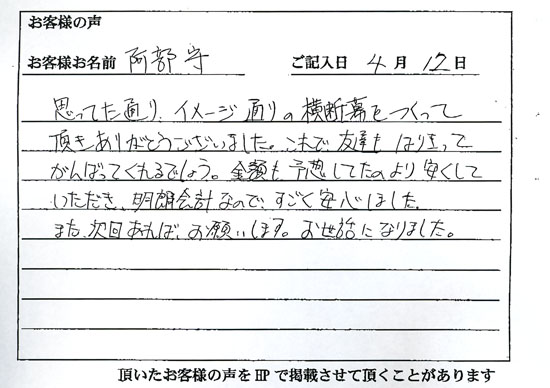 お客様の声
お客様お名前 阿部 守 ご記入日 4 月 12 日
思ってた通り、イメージ通りの横断幕をつくって
頂きありがとうございました。これで友達もはり立って
がんばってくれるでしょう。金額も予想してたのより安くして
いただき、明朗会計なので、すごく安心しました。
また、次回あれば、お願いします。お世話になりました。
頂いたお客様の声を HP で掲載させて頂くことがあります